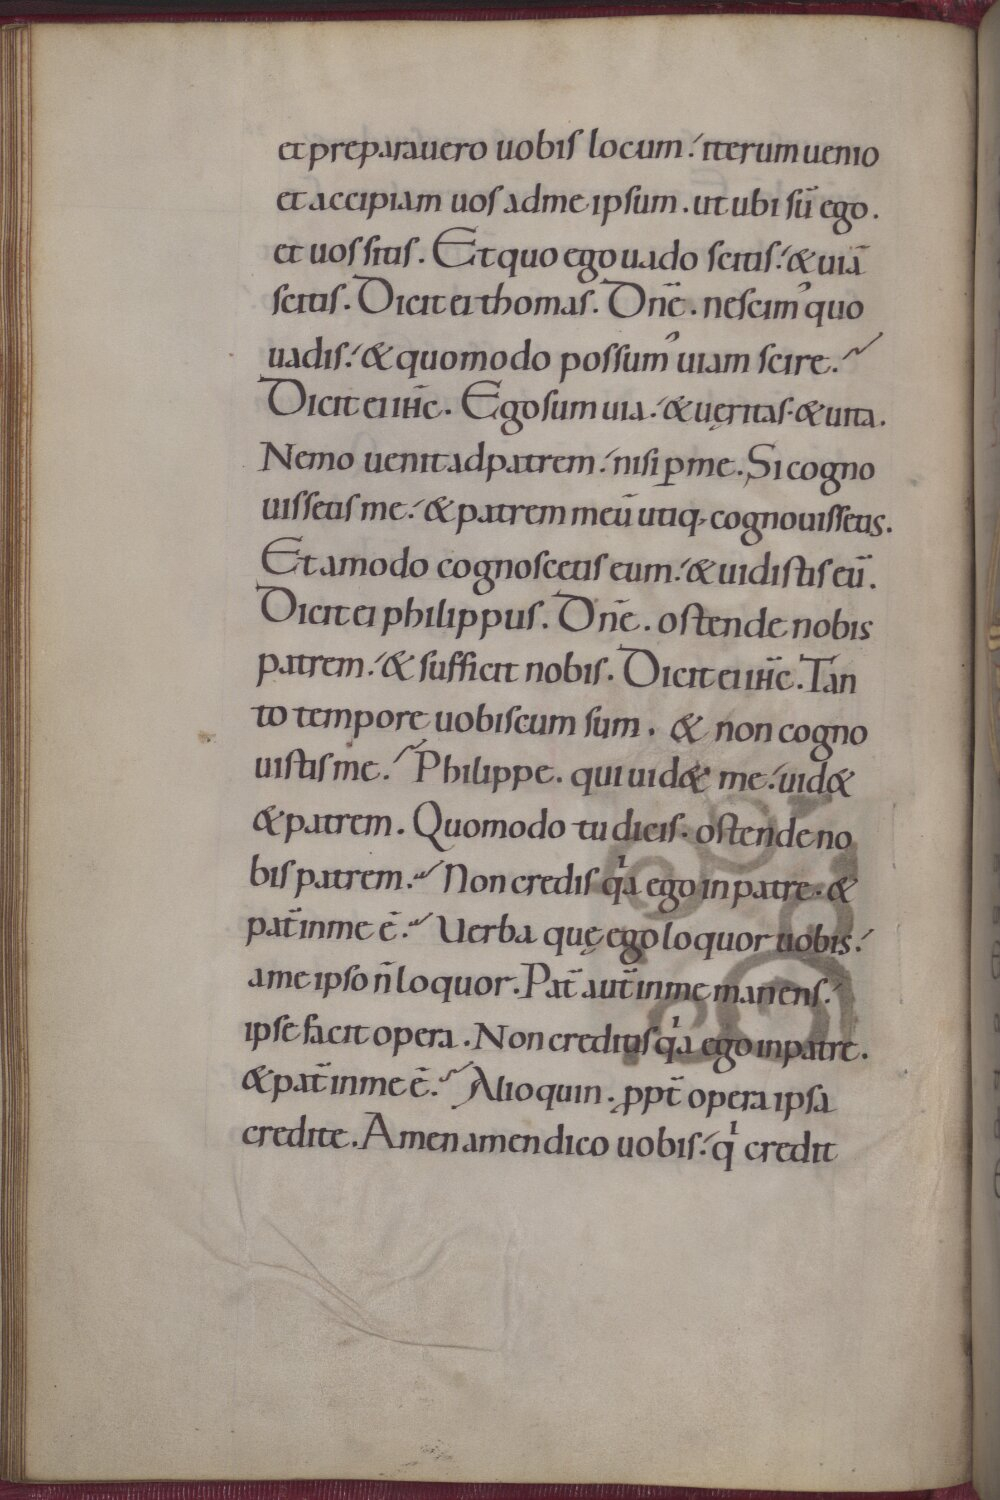 et preparauero uobis locum. iterum uenio
et accipiam uos ad me ipsum. ut ubi sū ego.
et uos sitis. Et quo ego uado scitis. & uiā
scitis. Dicit ei thomas. Dn̄e. nescim' quo
uadis. & quomodo possum' uiam scire.
Dicit ei ih̄c. Ego sum uia. & uęritas. & uita.
Nemo uenit ad patrem. nisi ꝑ me. Si cogno
uissetis me. & patrem meū utiq; cognouissetis.
Et amodo cognoscetis eum. & uidistis eū.
Dicit ei philippus. Dn̄e. ostende nobis
patrem. & sufficit nobis. Dicit ei ih̄c. Tan
to tempore uobiscum sum. & non cogno
uistis me. Philippe. qui uid& me. uid&
& patrem. Quomodo tu dicis. ostende no
bis patrem. Non credis qͥa ego in patre. &
pat̄ in me ē. Uerba quę ego loquor uobis.
a me ipso n̄ loquor. Pat̄ aut̄ in me manens.
ipse facit opera. Non creditis qͥa ego in patre.
& pat̄ in me ē. Alioquin. ꝓpt̄ opera ipsa
credite. Amen amen dico uobis. qͥ credit